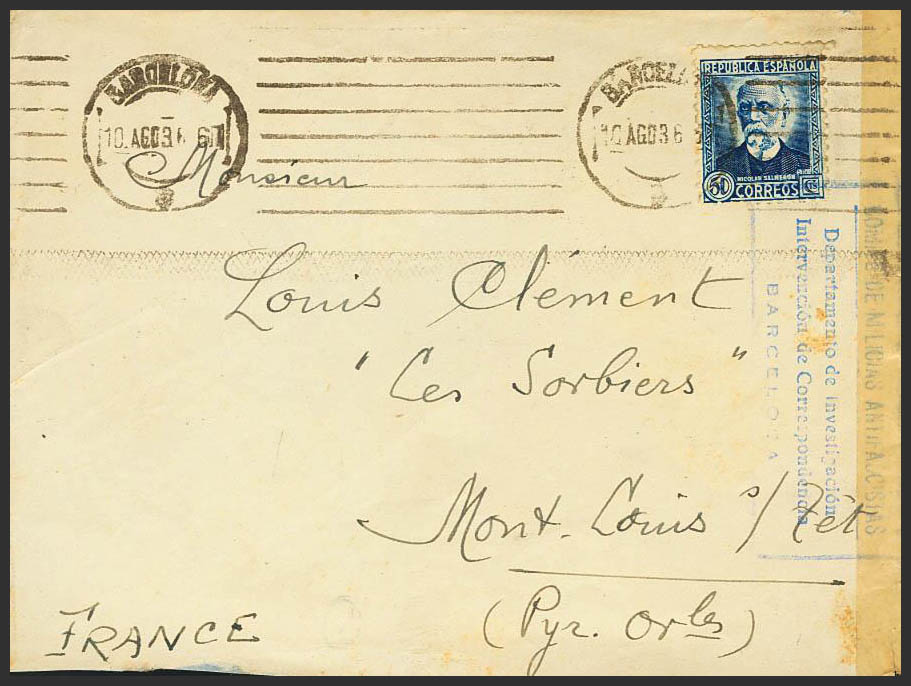 BARCELONA
10 AGO36 6T
BARCEL
10 AGO36
REPUBLICA ESPAÑOLA
NICOLAS SALMERON
50 CORREOS CTS
Monsieur
Louis Clément
"Les Sorbiers"
Mont-Louis s/ Têt
(Pyr. Orles)
FRANCE
Departamento de Investigación
Intervención de Correspondencia
BARCELONA
COMITÉ DE MILICIAS ANTIFASCISTAS